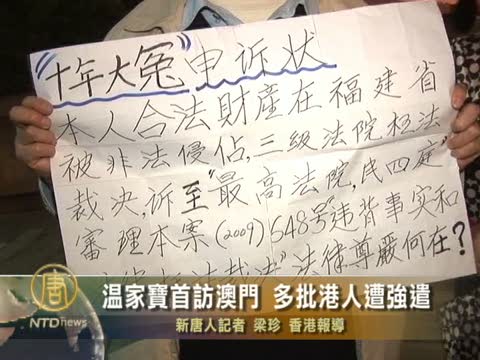 “十年大冤”申诉状
本人合法財産在福建省
被非法侵佔,三級法院枉法
裁决,诉至“最高法院,民四庭”
審理本案(2009)648号违背事实和
法律尊嚴何在?
唐
NTDnews
温家寶首訪澳門 多批港人遭強遣
新唐人記者 梁珍 香港報導